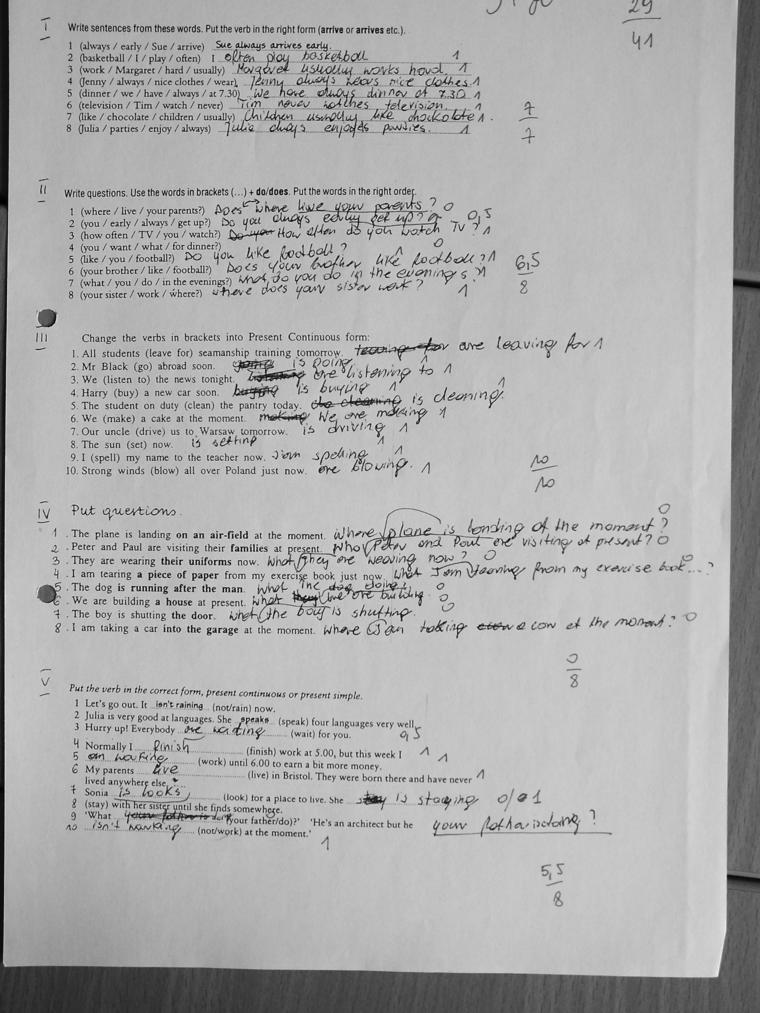 29
41
I Write sentences from these words. Put the verb in the right form (arrive or arrives etc.).
1 (always / early / Sue / arrive) Sue always arrives early.
2 (basketball / I / play / often) I often play basketball 1
3 (work / Margaret / hard / usually) Margaret usually works hard. 1
4 (Jenny / always / nice clothes / wear) Jenny always wears nice clothes 1
5 (dinner / we / have / always / at 7.30) We have always dinner at 7.30 1
6 (television / Tim / watch / never) Tim never watches television. 1
7 (like / chocolate / children / usually) Children usually like chockolate 1.
8 (Julia / parties / enjoy / always) Julia always enjoys parties. 1
7
7
II Write questions. Use the words in brackets (...) + do/does. Put the words in the right order.
1 (where / live / your parents?) Does where live your parents? 0
2 (you / early / always / get up?) Do you always early get up? 0,5
3 (how often / TV / you / watch?) How often do you watch TV? 1
4 (you / want / what / for dinner?) 0
5 (like / you / football?) Do you like football? 1
6 (your brother / like / football?) Does your brother like football? 1
7 (what / you / do / in the evenings?) What do you do in the evenings? 1
8 (your sister / work / where?) where does your sister work? 1
6,5
8
III Change the verbs in brackets into Present Continuous form:
1. All students (leave for) seamanship training tomorrow. are leaving for 1
2. Mr Black (go) abroad soon. is going 1
3. We (listen to) the news tonight. are listening to 1
4. Harry (buy) a new car soon. is buying 1
5. The student on duty (clean) the pantry today. is cleaning. 1
6. We (make) a cake at the moment. We are making 1
7. Our uncle (drive) us to Warsaw tomorrow. is driving 1
8. The sun (set) now. is setting 1
9. I (spell) my name to the teacher now. I'am spelling 1
10. Strong winds (blow) all over Poland just now. are blowing. 1
10
10
IV Put questions.
1. The plane is landing on an air-field at the moment. Where plane is landing at the moment? 0
2. Peter and Paul are visiting their families at present. Who Peter and Paul are visiting at present? 0
3. They are wearing their uniforms now. What they are wearing now? 0
4. I am tearing a piece of paper from my exercise book just now. What I am tearing from my exercise book...? 0
5. The dog is running after the man. What the dog doing? 0
6. We are building a house at present. What we are building. 0
7. The boy is shutting the door. What the boy is shutting. 0
8. I am taking a car into the garage at the moment. Where I am taking a car at the moment? 0
0
8
V Put the verb in the correct form, present continuous or present simple.
1 Let's go out. It isn't raining (not/rain) now.
2 Julia is very good at languages. She speaks (speak) four languages very well.
3 Hurry up! Everybody are waiting (wait) for you. 0,5
4 Normally I finish (finish) work at 5.00, but this week I 1
5 am working (work) until 6.00 to earn a bit more money. 1
6 My parents live (live) in Bristol. They were born there and have never 1
lived anywhere else.
7 Sonia is looks (look) for a place to live. She is staying 0/ 1
8 (stay) with her sister until she finds somewhere.
9 'What (your father/do)?' 'He's an architect but he your father is doing?
10 isn't working (not/work) at the moment.' 1
5,5
8